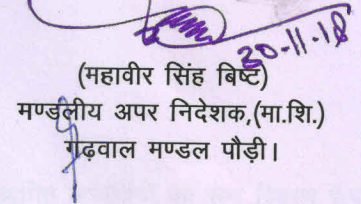 30-11-18
(महावीर सिंह बिष्ट)
मण्डलीय अपर निदेशक,(मा.शि.)
गढ़वाल मण्डल पौड़ी।